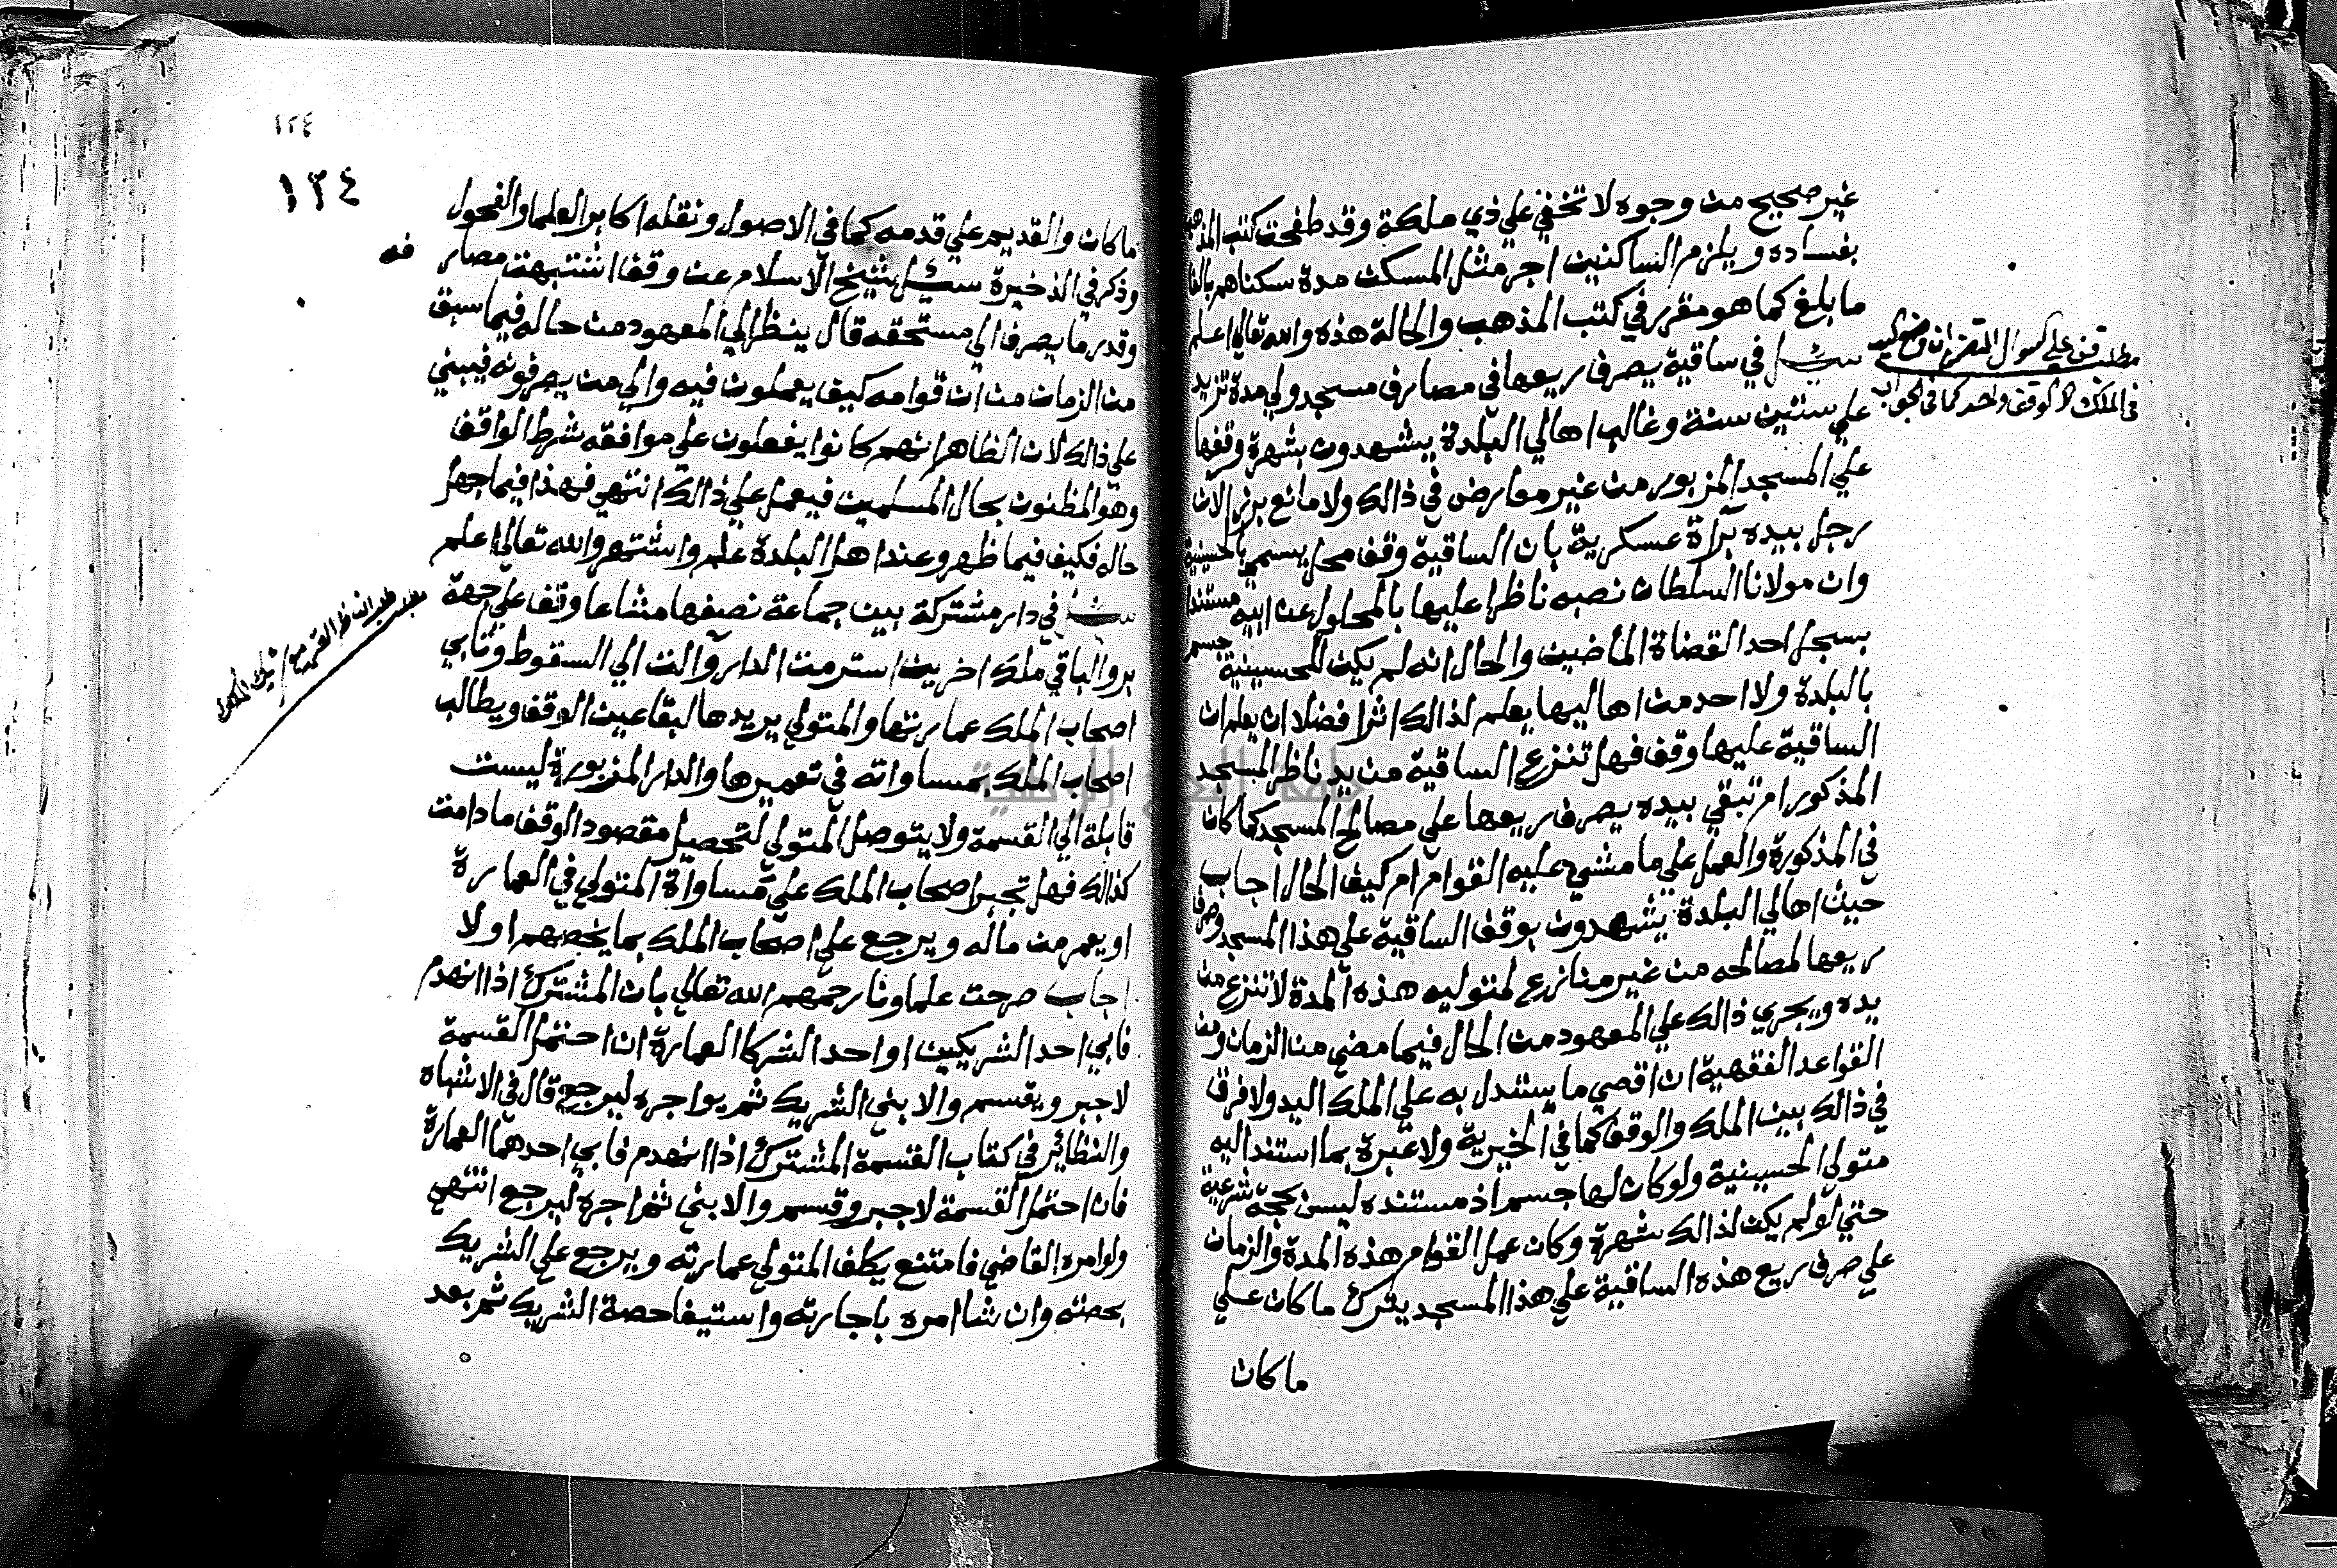 غير صحيح من وجوه لا تخفي علي ذي ملكة وقد طفحت كتب المذهب
بفساده ويلزم الساكنين اجر مثل المسكن مدة سكناهم بالغا
ما بلغ كما هو مقرر في كتب المذهب والحالة هذه والله تعالي اعلم
سئل في ساقية يصرف ريعها في مصارف مسجد ولي مدة تزيد
علي ستين سنة وغالب اهالي البلدة يشهدون بشهرة وقفها
علي المسجد المزبور من غير معارض في ذالك ولا مانع برز الان
رجل بيده براة عسكرية بان الساقية وقف محل يسمي بالحسينية
وان مولانا السلطان نصبه ناظرا عليها بالمحلول عن ابيه مستندا
بسجل احد القضاة الماضين والحال انه لم يكن للحسينية جسم
بالبلدة ولا احد من اهاليها يعلم لذالك اثرا فضلا ان يعلم ان
الساقية عليها وقف فهل تنزع الساقية من يد ناظر المسجد
المذكور ام تبقي بيده يصرف ريعها علي مصالح المسجد كما كان
في المذكورة والعمل علي ما مشي عليه القوام ام كيف الحال اجاب
حيث اهالي البلدة يشهدون بوقف الساقية علي هذا المسجد وصرف
ريعها لمصالحه من غير منازع لمتوليه هذه المدة لا تنزع من
يده ويجري ذالك علي المعهود من الحال فيما مضي من الزمان ومن
القواعد الفقهية ان اقصي ما يستدل به علي الملك اليد ولا فرق
في ذالك بين الملك والوقف كما في الخيرية ولا عبرة بما استند اليه
متولي الحسينية ولو كان لها جسم اذ مستنده ليس بحجة شرعية
حتي لو لم يكن لذالك شهرة وكان عمل القوام هذه المدة والزمان
علي صرف ريع هذه الساقية علي هذا المسجد يترك ما كان علي
ما كان
في الملك لا لوقف واحد كما في الجواب
١٢٤
١٢٤
ما كان والقديم علي قدمه كما في الاصول ونقله اكابر العلما والفحول
وذكر في الذخيرة سئل شيخ الاسلام عن وقف اشتبهت مصار فه
وقدر ما يصرف الي مستحقه قال ينظر الي المعهود من حاله فيما سبق
من الزمان من ان قوامه كيف يعملون فيه والي من يصرفونه فيبني
علي ذالك لان الظاهر انهم كانوا يفعلون علي موافقه شرط الواقف
وهو المظنون بحال المسلمين فيعمل علي ذالك انتهي فهذا فيما جهل
حاله فكيف فيما ظهر وعند اهل البلدة علم واشتهر والله تعالي اعلم
سئل في دار مشتركة بين جماعة نصفها مشاعا وقف علي جهة
بر والباقي ملك اخرين استرمت الدار وآلت الي السقوط وتابي
اصحاب الملك عمارتها والمتولي يريدها لبقا عين الوقف ويطالب
اصحاب الملك بمساواته في تعميرها والدار المزبورة ليست
قابلة الي القسمة ولا يتوصل المتولي لتحصيل مقصود الوقف ما دامت
كذالك فهل تجبر اصحاب الملك علي مساواة المتولي في العمارة
او يعمر من ماله ويرجع علي اصحاب الملك بما يخصهم او لا
اجاب صرحت علماونا رحمهم الله تعالي بان المشترك اذا انهدم
فابي احد الشريكين او احد الشركا العمارة ان احتمل القسمة
لا جبر ويقسم والا بني الشريك ثم يواجره ليرجع قال في الاشباه
والنظائر في كتاب القسمة المشترك اذا انهدم فابي احدهما العمارة
فان احتمل القسمة لا جبر وقسم والا بني ثم اجره ليرجع انتهي
ولو امره القاضي فامتنع يكلف المتولي عمارته ويرجع علي الشريك
بحصته وان شا امره باجارته واستيفا حصة الشريك ثم بعد